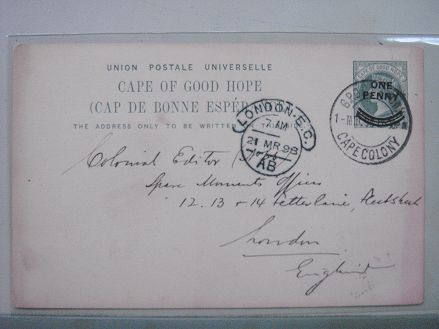 UNION POSTALE UNIVERSELLE
CAPE OF GOOD HOPE
(CAP DE BONNE ESPÉR
THE ADDRESS ONLY TO BE WRITTEN
CAPE OF GOOD HOPE
ONE
PENNY
CAPE COLONY
LONDON.E.C.
7 AM
21 MR 98
AB
Colonial Editor
Spare Moments Offices
12. 13 & 14 Fetter Lane, Fleet Street
London
England